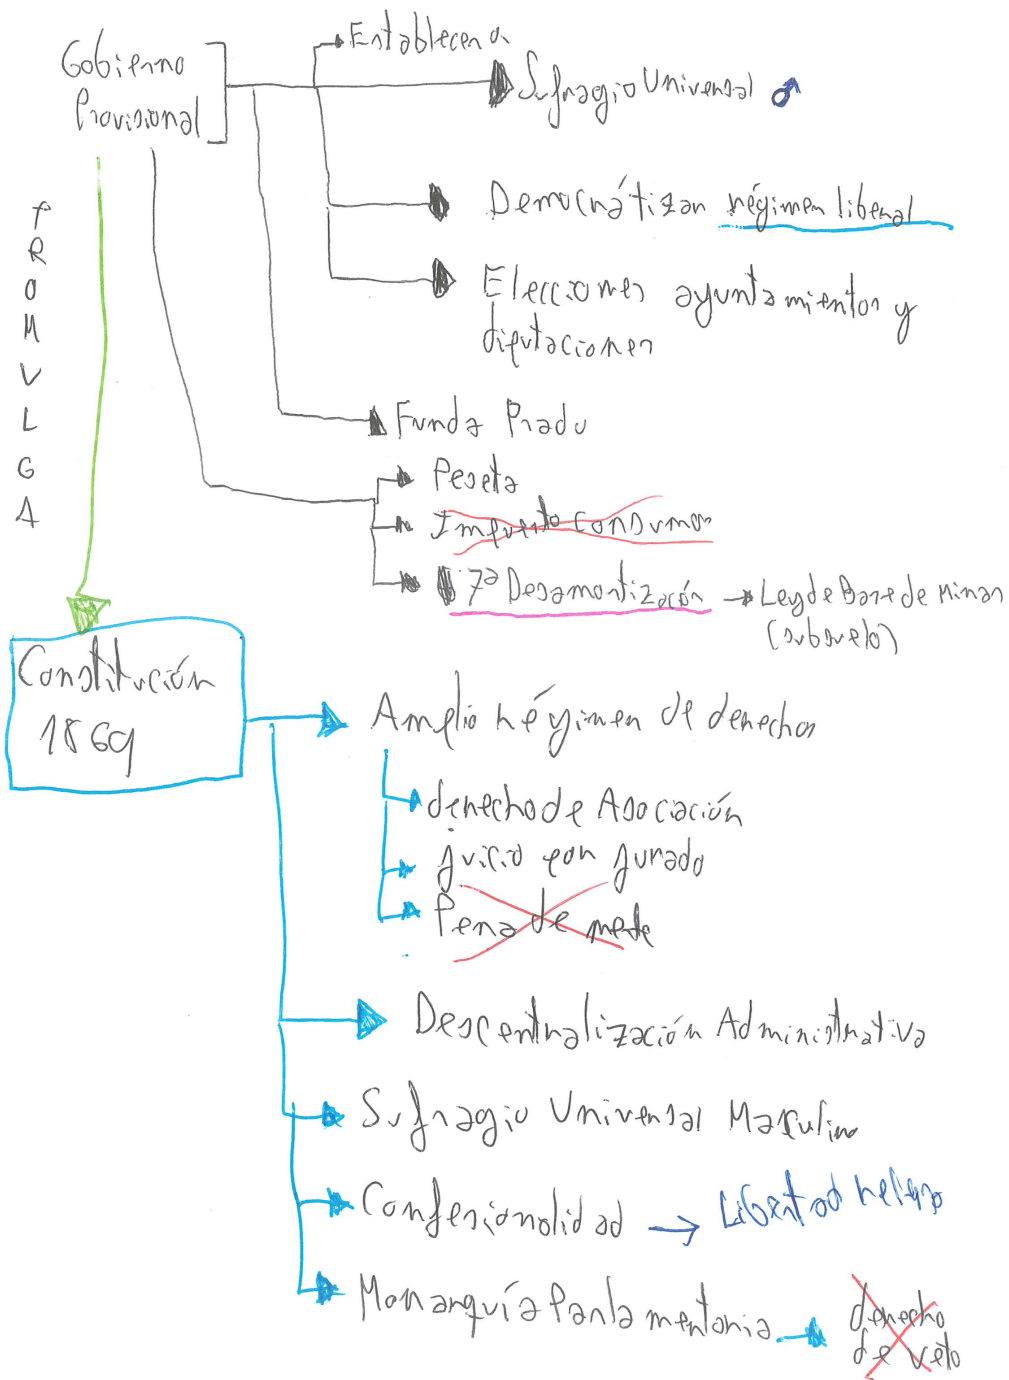 Gobierno
Provisional
Establecer
Sufragio Universal ♂
Democrátizar régimen liberal
Elecciones ayuntamientos y
diputaciones
PROMULGA
Funda Prado
Peseta
Impuesto Consumos
7ª Desamortización → Ley de Base de Minas
(subsuelo)
Constitución
1869
Amplio régimen de derechos
derecho de Asociación
juicio con jurado
Pena de
Descentralización Administrativa
Sufragio Universal Masculino
Confesionalidad → Libertad
Monarquía Parlamentaria
derecho
de veto